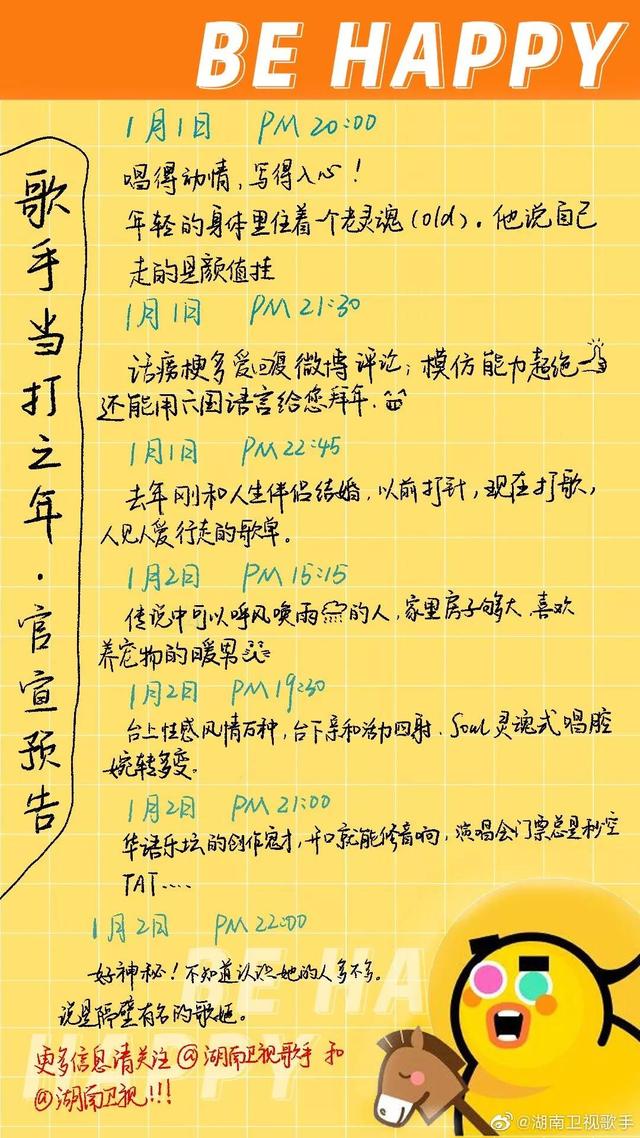 BE HAPPY
歌手当打之年·官宣预告
1月1日 PM 20:00
唱得动情,写得入心!
年轻的身体里住着一个老灵魂(old).他说自己
走的是颜值挂
1月1日 PM 21:30
话痨梗多爱回复微博评论;模仿能力超绝
还能用六国语言给您拜年.
1月1日 PM 22:45
去年刚和人生伴侣结婚,以前打针,现在打歌,
人见人爱行走的歌单。
1月2日 PM 15:15
传说中可以呼风唤雨的人,家里房子够大,喜欢
养宠物的暖男
1月2日 PM 19:30
台上性感风情万种,台下亲和活力四射.Soul灵魂式唱腔
婉转多变。
1月2日 PM 21:00
华语乐坛的创作鬼才,开口就能修音响,演唱会门票总是秒空
TAT....
1月2日 PM 22:00
好神秘!不知道认识她的人多不多。
说是隔壁有名的歌姬。
BE HA
HAPPY
更多信息请关注@湖南卫视歌手 和
@湖南卫视!!!
@湖南卫视歌手